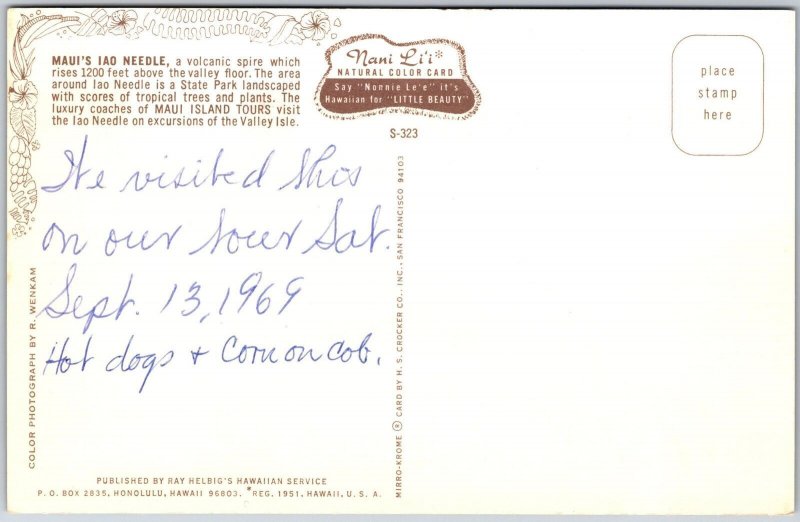 MAUI'S IAO NEEDLE, a volcanic spire which
rises 1200 feet above the valley floor. The area
around Iao Needle is a State Park landscaped
with scores of tropical trees and plants. The
luxury coaches of MAUI ISLAND TOURS visit
the Iao Needle on excursions of the Valley Isle.
Nani Li'i*
NATURAL COLOR CARD
Say "Nonnie Le'e" it's
Hawaiian for "LITTLE BEAUTY"
S-323
place
stamp
here
We visited this
on our tour Sat.
Sept. 13, 1969
Hot dogs + Corn on cob.
COLOR PHOTOGRAPH BY R. WENKAM
MIRRO-KROME ® CARD BY H. S. CROCKER CO., INC., SAN FRANCISCO 94103
PUBLISHED BY RAY HELBIG'S HAWAIIAN SERVICE
P. O. BOX 2835, HONOLULU, HAWAII 96803. *REG. 1951, HAWAII, U. S. A.